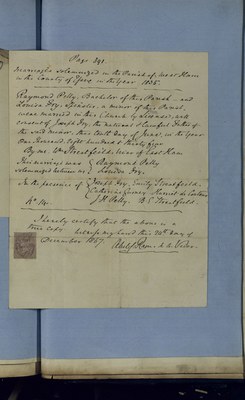 Page 391
Marriages solemnized in the Parish of West Ham
in the County of Essex in the Year 1835.
Raymond Pelly, Bachelor of this Parish and
Louisa Fry, Spinster, a minor of this Parish,
were married in this Church by License, with
consent of Joseph Fry, the natural & lawful Father of
the said Minor, this Day of in the year
One thousand eight hundred & thirty five
By me Wm Streatfeild, Vicar of East Ham
This marriage was Raymond Pelly
solemnized between us Louisa Fry.
In the presence of Joseph Fry, Emily Streatfeild.
Catherine Gurney Harriet
J H Pelly. Streatfeild.
No
I hereby certify that the above is a
true copy. Witness my hand this Day of
December 1857.